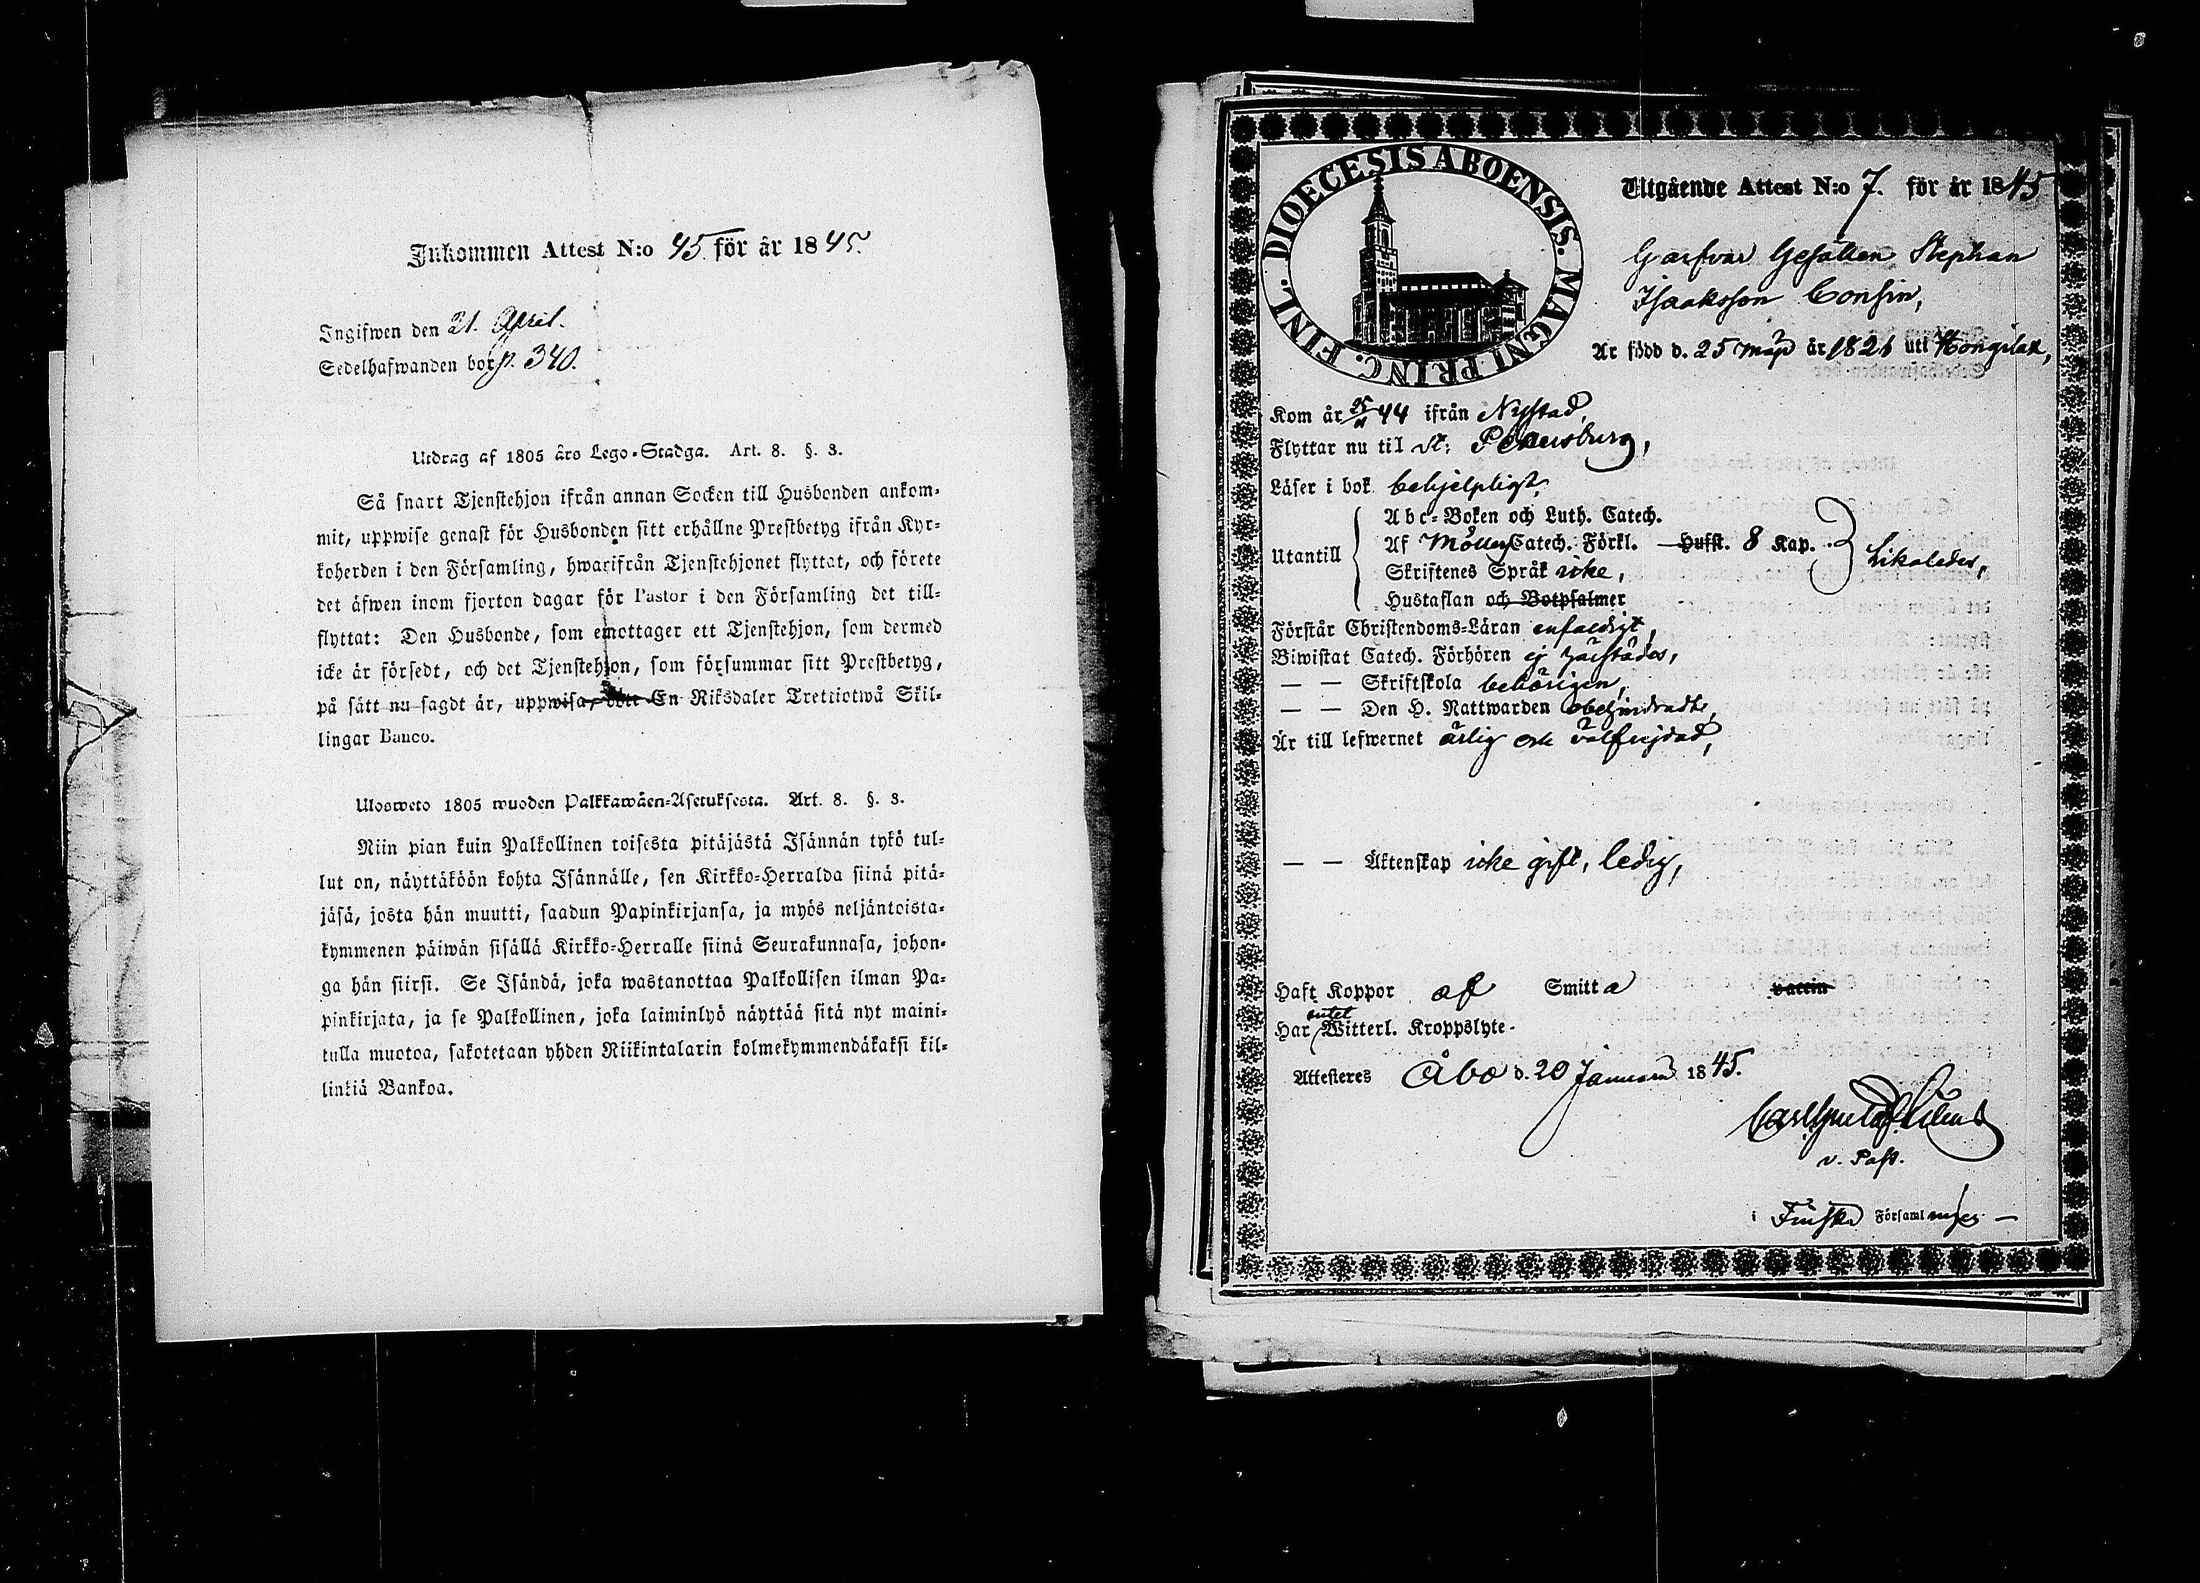 Inkommen Attest N:o 45. för år 1845.
Ingifwen den 21. April.
Sedelhafwanden bor p. 340.
Utdrag af 1805 års Lego-Stadga. Art. 8. §. 3.
Så snart Tjenstehjon ifrån annan Socken till Husbonden ankom-
mit, uppwise genast för Husbonden sitt erhållne Prestbetyg ifrån Kyr-
koherden i den Församling, hwarifrån Tjenstehjonet flyttat, och förete
det äfwen inom fjorton dagar för Pastor i den Församling det till-
flyttat: Den Husbonde, som emottager ett Tjenstehjon, som dermed
icke är försedt, och det Tjenstehjon, som försummar sitt Prestbetyg,
på sätt nu sagdt är, uppwisa, böte En Riksdaler Trettiotwå Skil-
lingar Banco.
Ulosweto 1805 wuoden Palkkawäen-Asetuksesta. Art. 8. §. 3.
Niin pian kuin Palkollinen toisesta pitäjästä Isännän tykö tul-
lut on, näyttäköön kohta Isännälle, sen Kirkko-Herralda siinä pitä-
jäsä, josta hän muutti, saadun Papinkirjansa, ja myös neljäntoista-
kymmenen päiwän sisällä Kirkko-Herralle siinä Seurakunnasa, johon-
ga hän siirsi. Se Isändä, joka wastanottaa Palkollisen ilman Pa-
pinkirjata, ja se Palkollinen, joka laiminlyö näyttää sitä nyt maini-
tulla muotoa, sakotetaan yhden Riikintalarin kolmekymmendäkaksi kil-
linkiä Bankoa.
DIOECESIS ABOENSIS. MAGNI PRINC. FINL.
Utgående Attest N:o 7. för år 1845
Garfvar Gesällen Stephan
Isaaksson Consin,
Är född d. 25 Maji år 1821 uti Kongilax,
Kom år 25/11 44 ifrån Nystad,
Flyttar nu til St: Petersburg,
Läser i bok behjelpligt,
Utantill
Abc-Boken och Luth. Catech.
Af Möllers Catech. Förkl. Hufst. 8 Kap.
Likaledes,
Skriftenes Språk icke,
Hustaflan och Botpsalmer
Förstår Christendoms-Läran enfaldigt,
Biwistat Catech. Förhören ej härstädes,
— — Skriftskola behörigen,
— — Den H. Nattwarden obehindradt,
Är till lefwernet ärlig och välfrejdad,
— — Äktenskap icke gift, ledig,
Haft Koppor af Smitta vaccin
Har intet Witterl. Kroppslyte.
Attesteres Åbo d. 20 Januari 1845.
v. Past.
i Finska Församlingen —